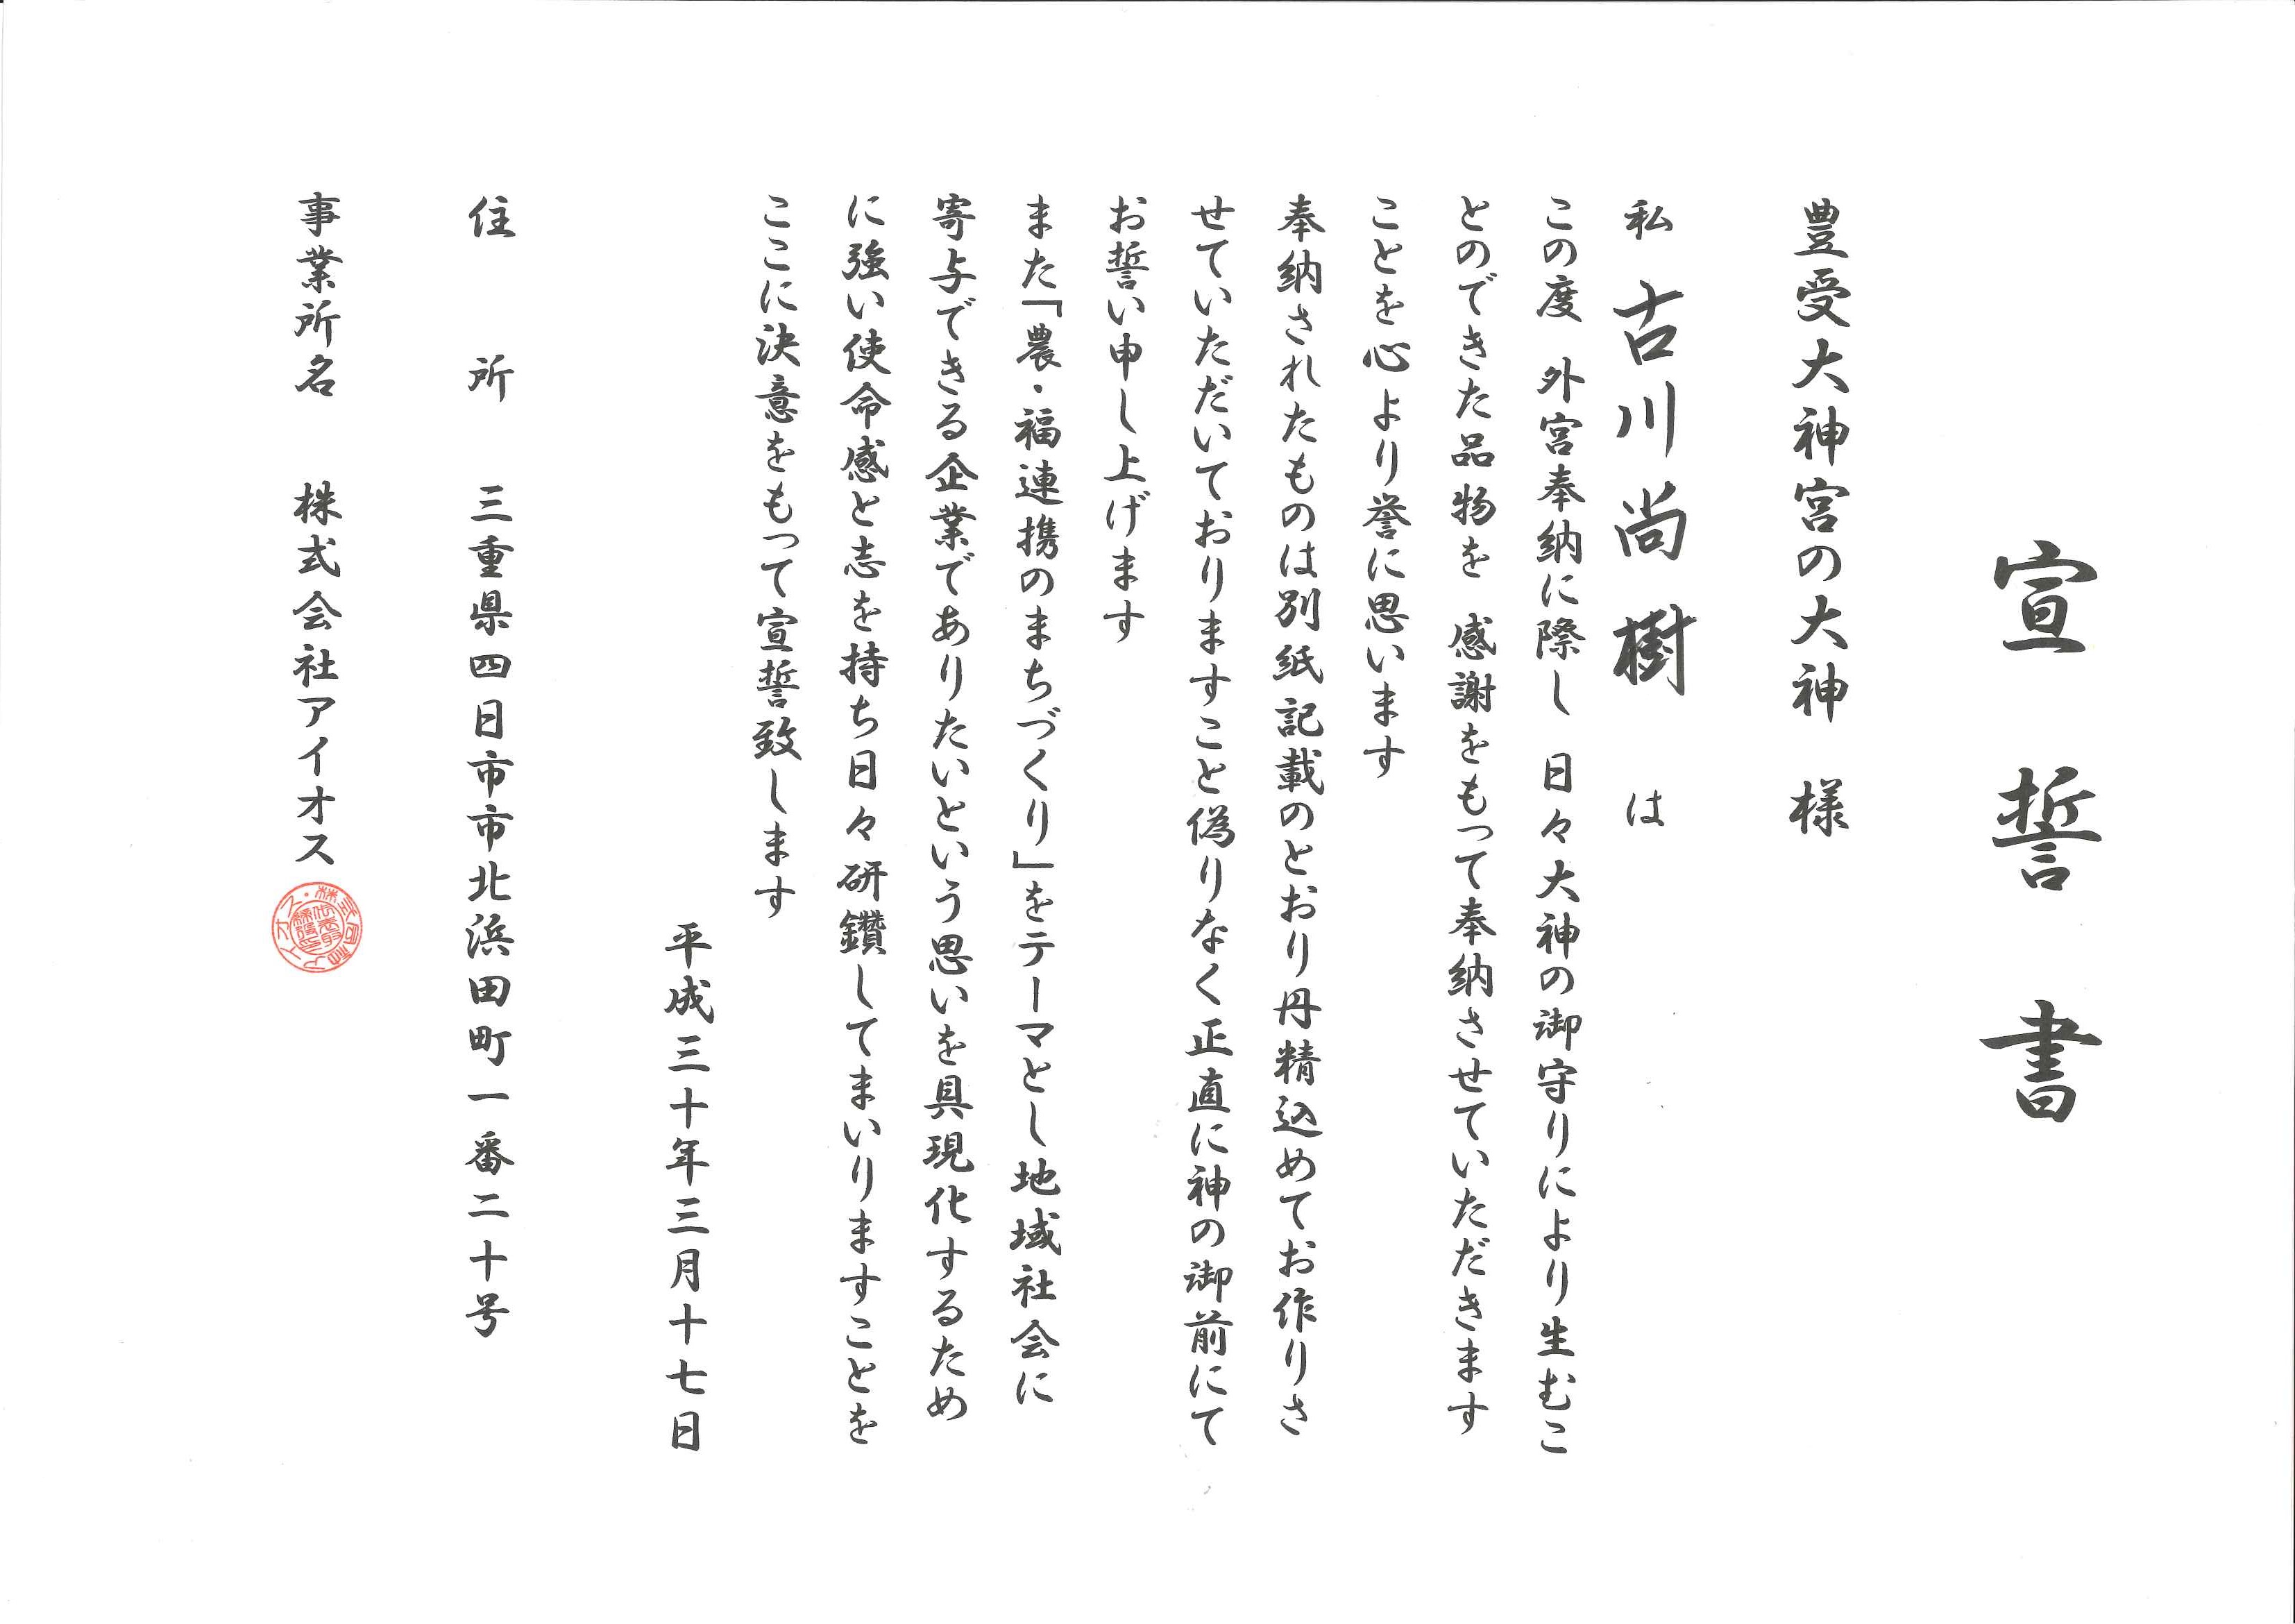 宣誓書
豊受大神宮の大神 様
私 古川尚樹 は
この度 外宮奉納に際し 日々大神の御守りにより生むこ
とのできた品物を 感謝をもって奉納させていただきます
ことを心より誉に思います
奉納されたものは別紙記載のとおり丹精込めてお作りさ
せていただいておりますこと偽りなく正直に神の御前にて
お誓い申し上げます
また「農・福連携のまちづくり」をテーマとし地域社会に
寄与できる企業でありたいという思いを具現化するため
に強い使命感と志を持ち日々研鑽してまいりますことを
ここに決意をもって宣誓致します
平成三十年三月十七日
住 所 三重県四日市市北浜田町一番二十号
事業所名 株式会社アイオス